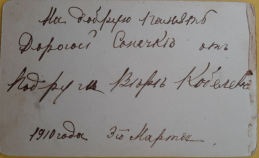 На добрую память
Дорогой Сонечкѣ отъ
Подруги Вѣры Кобелев
1910 года 3го Марта.